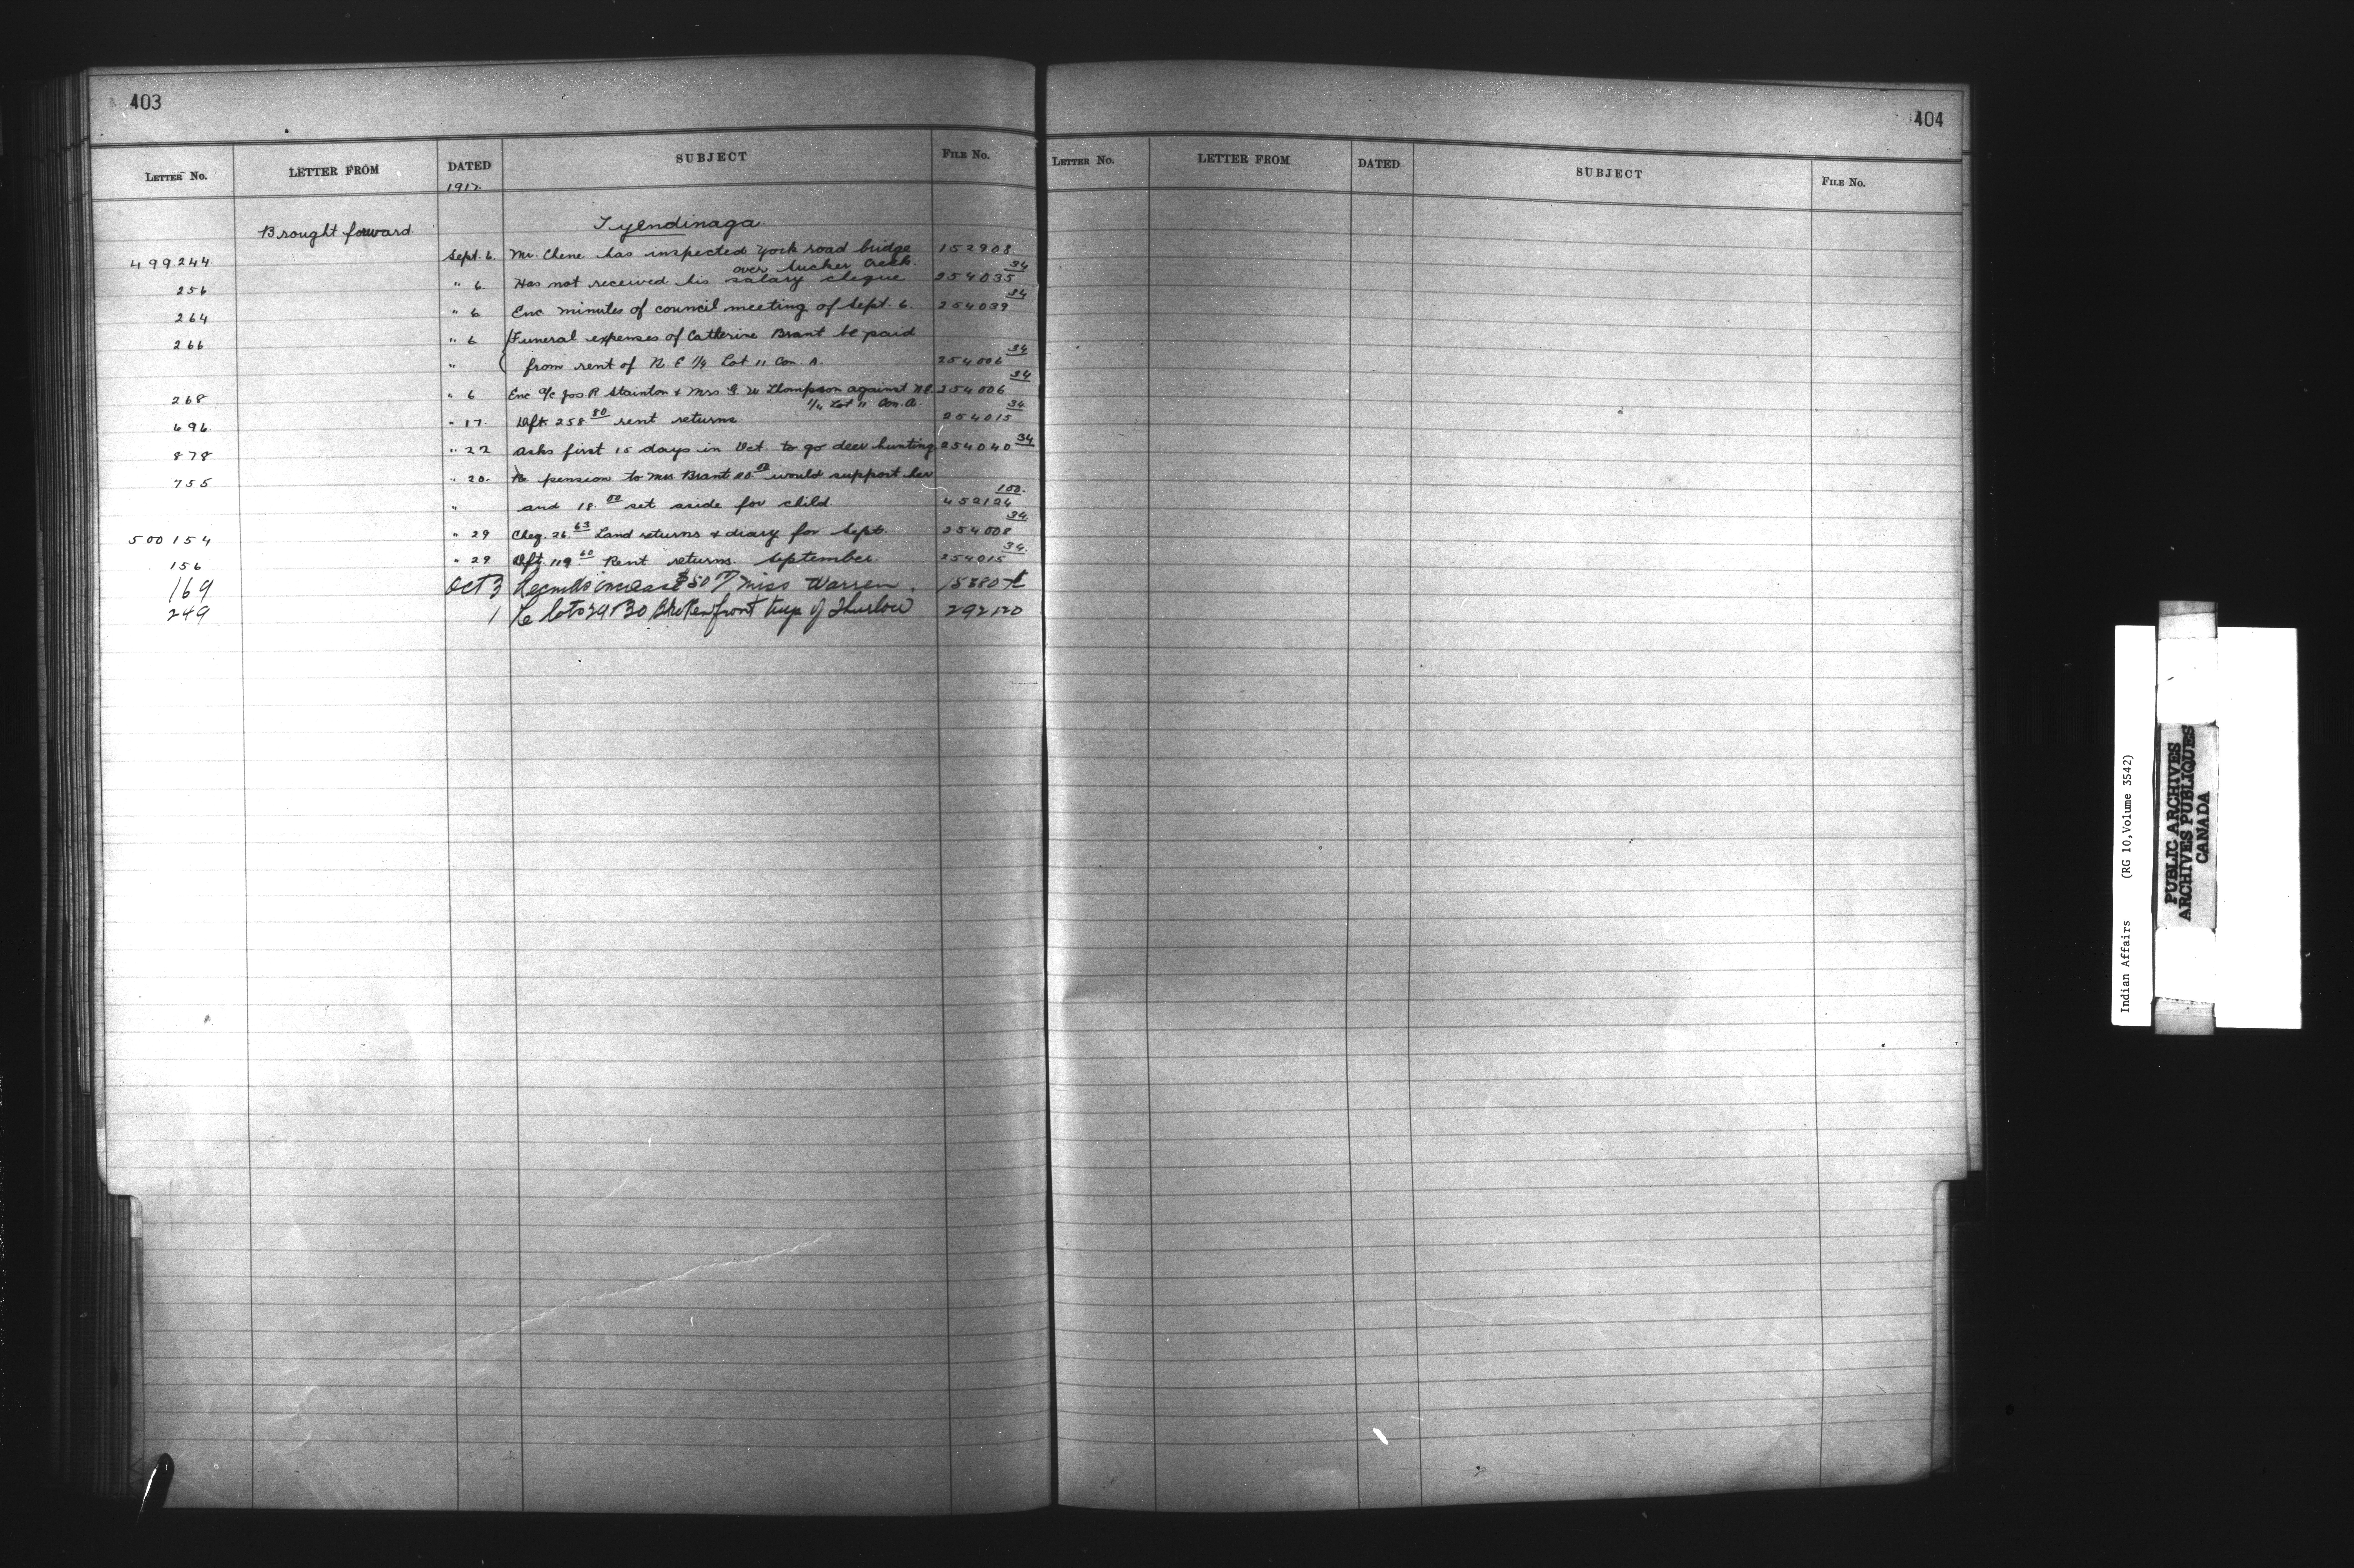 403
LETTER NO. LETTER FROM DATED SUBJECT FILE NO.
1917
Brought forward Tyendinaga
499.244. Sept. 6. Mr. Chene has inspected York road bridge 152908
over Sucker Creek.
256 " 6 Has not received his salary cheque 254035 34
264 " 6 Enc minutes of council meeting of Sept. 6. 254039 34
266 " 6 Funeral expenses of Catherine Brant be paid
" from rent of N. E 1/4 Lot 11 Con. A. 254006 34
268 " 6 Enc a/c Jos R Stainton & Mrs G. W Thompson against N.E. 254006 34
1/4 Lot 11 Con. A.
696. " 17. Dft. 258 80 rent returns 254015 34
878 " 22 Asks first 15 days in Oct. to go deer hunting 254040 34
755 " 20. Re pension to Mrs Brant would support her
" and 18. 00 set aside for child. 452124 100.
500154 " 29 Cheq. 26. 63 Land returns & diary for Sept. 254008 34
156 " 29 Dft. 119 60 Rent returns. September. 254015 34.
169 Oct 3 increase $50 Miss Warren.
249 1 Re lots 29 & 30 Broken front twp of Thurlow 292120
404
LETTER NO. LETTER FROM DATED SUBJECT FILE NO.
Indian Affairs (RG 10, Volume 3542)
PUBLIC ARCHIVES
ARCHIVES PUBLIQUES
CANADA